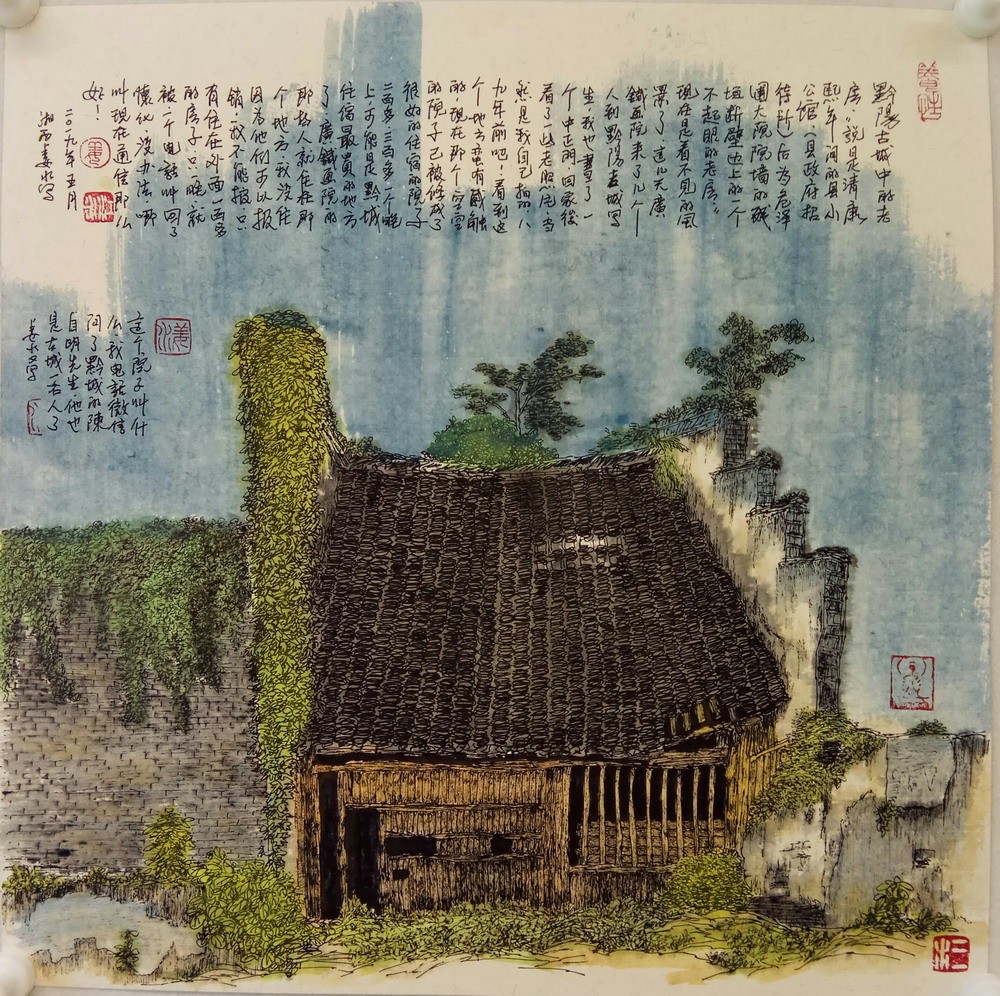 黔陽古城中的老
房，說是清康
熙年间的县小
公馆（县政府招
待所）后为危洋
围大院院墙的残
垣断壁边上的一个
不起眼的老房。
现在是看不见的风
景了，这几天广
鐵畫院来了几个
人到黔陽古城写
生，我也畫了一
个中正門，回家後
看了些老照片，当
然是我自己拍的，八
九年前吧！看到这
个地方蛮有感触
的，现在那个空空
的院子已被修成了
很好的住宿的院子
二百多三百多一个晚
上，可能是黔城
住宿最贵的地方
了，广鐵畫院的
那些人就住在那
个地方，我没住
因为他们可以报
销，我不能报，只
有住在外面一百多
的房子，只一晚就
被一个电話叫回了
懷化，没办法，哪
叫现在通信那么
好！
二〇一九年五月
湘西姜水写
这个院子叫什
么，我电話微信
问了黔城的陳
自明先生，他也
是古城一老人了
姜水又写